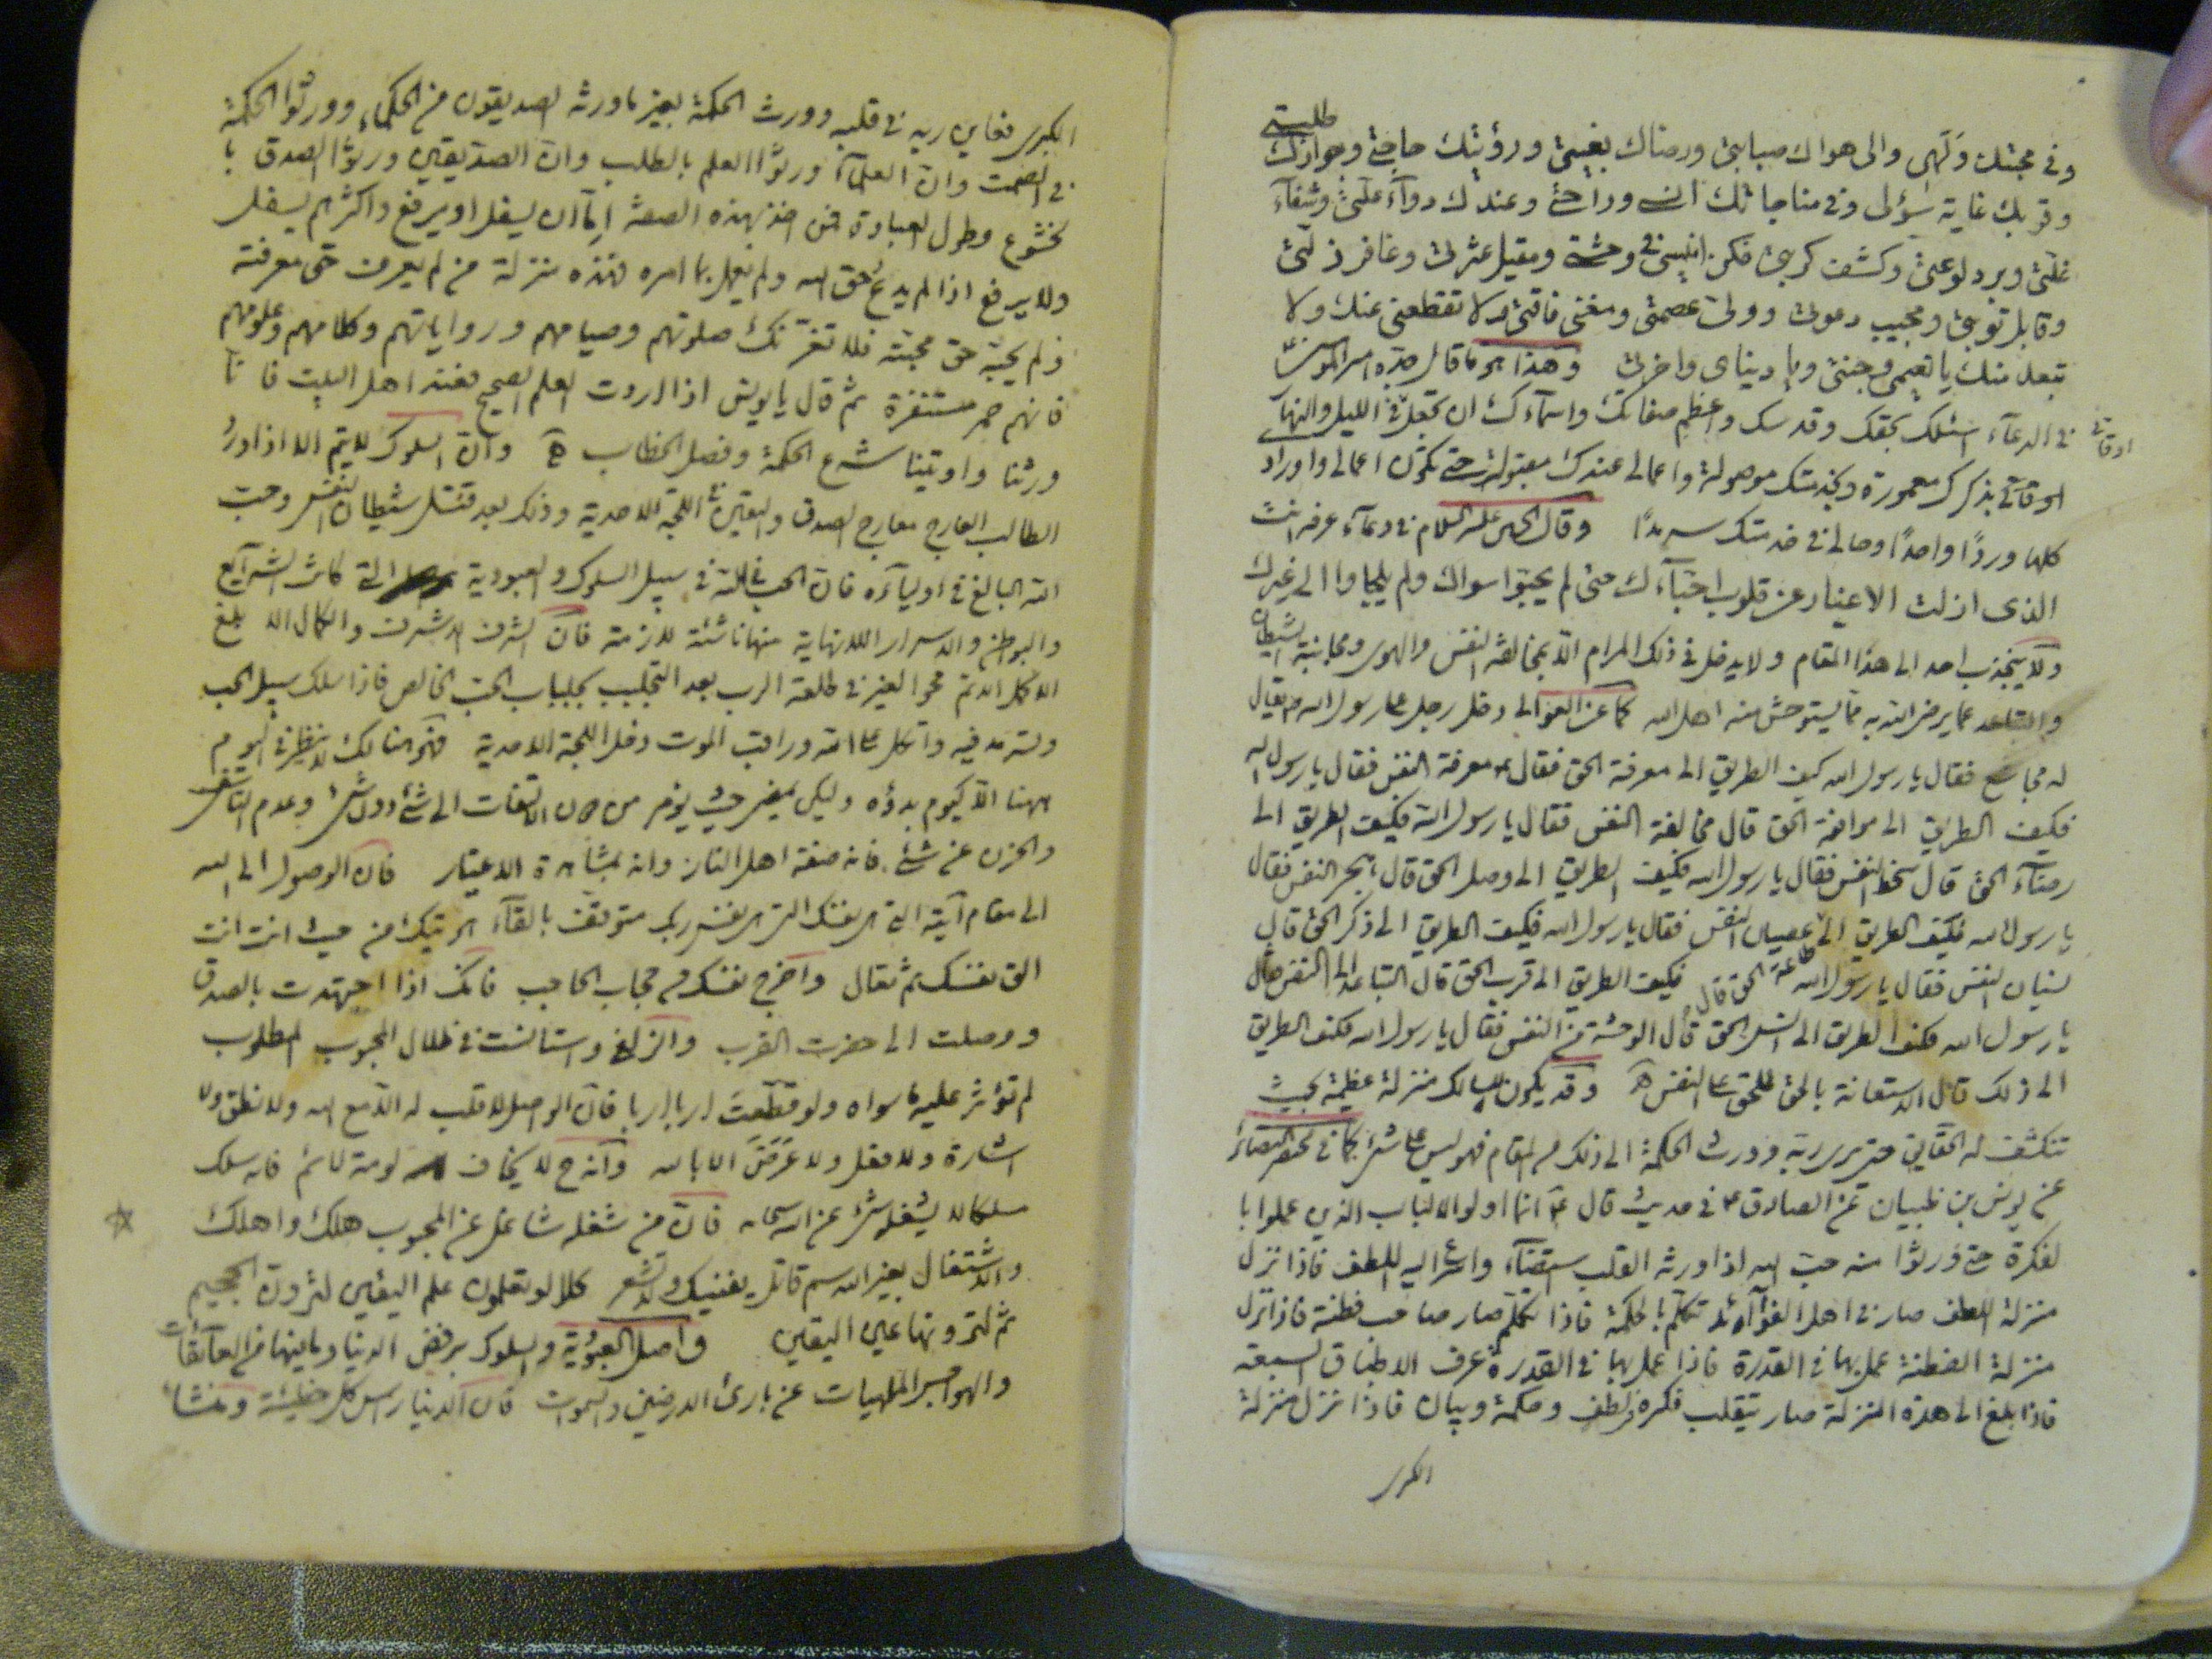 وفى محبتك وَلَهى والى هواك صبابتى ورضاك بغيتى ورؤيتك حاجتى وجوارك طلبتى
وقربك غاية سؤلى وفى مناجاتك انسى وراحتى وعندك دوآء علتى وشفآء
غلتى وبرد لوعتى وكشف كربتى فكن انيسى فى وحشتى ومقيل عثرتى وغافر زلتى
وقابل توبتى ومجيب دعوتى وولى عصمتى ومغنى فاقتى ولا تقطعنى عنك ولا
تبعدنى منك يا نعيمى وجنتى ويا دنياى واخرتى وهذا هو ما قال جده امير المؤمنين
فى الدعآء اسئلك بحقك وقدسك واعظم صفاتك واسمآءك ان تجعل فى الليل والنهار
اوقاتى
اوقاتى بذكرك معمورة وبخدمتك موصولة واعمالى عندك مقبولة حتى تكون اعمالى واورادى
كلها وردًا واحدًا وحالى فى خدمتك سرمدًا وقال الحسين عليه السلام فى دعآء عرفه انت
الذى ازلت الاغيار عن قلوب احبّآءك حتى لم يحبّوا سواك ولم يلجاوا الى غيرك
ولا ينجذب احد الى هذا المقام ولا يدخل فى ذلك المرام الّا بمخالفة النفس والهوى ومجانبة الشيطان
والتباعد عما يرضى الله به مما يستوحش منه اهل الله كما عن الغوالى دخل رجل على رسول الله ص يقال
له مجاشع فقال يا رسول الله كيف الطريق الى معرفة الحق فقال ص معرفة النفس فقال يا رسول الله
فكيف الطريق الى موافقة الحق قال مخالفة النفس فقال يا رسول الله فكيف الطريق الى
رضآء الحق قال سخط النفس فقال يا رسول الله فكيف الطريق الى وصل الحق قال هجر النفس فقال
يا رسول الله فكيف الطريق الى طاعة الحق قال عصيان النفس فقال يا رسول الله فكيف الطريق الى ذكر الحق قال
نسيان النفس فقال يا رسول الله فكيف الطريق الى قرب الحق قال التباعد من النفس قال
يا رسول الله فكيف الطريق الى انس الحق قال الوحشة من النفس فقال يا رسول الله فكيف الطريق
الى ذلك قال الاستعانة بالحق على النفس وقد يكون للسالك منزلة عظيمة بحيث
تنكشف له الحقايق حتى يرى ربه وورث الحكمة الى ذلك من المقام فهو ليس على شئ كما فى مختصر البصائر
عن يونس بن ظبيان عن الصادق ع فى حديث قال ع انما اولو الالباب الذين عملوا با
لفكرة حتى ورثوا منه حب الله اذا ورثه القلب استضآء واسرع اليه اللطف فاذا نزل
منزلة اللطف صار من اهل الفوآئد تكلم بالحكمة فاذا تكلم صار صاحب فطنة فاذا نزل
منزلة الفطنة عمل بها فى القدرة فاذا عمل بها فى القدرة عرف الاطباق السبعة
فاذا بلغ الى هذه المنزلة صار يتقلب فكره بلطف وحكمة وبيان فاذا نزل منزلة
الكبرى
الكبرى فعاين ربه فى قلبه وورث الحكمة بغير ما ورثه الصديقون من الحكمآء وورثوا الحكمة
فى الصمت وان العلمآء ورثوا العلم بالطلب وان الصديقين ورثوا الصدق با
لخشوع وطول العبادة فمن اخذ بهذه الصفة امّا ان يسفل او يرفع واكثرهم يسفل
ولا يرفع اذا لم يدع حق الله ولم يعمل بما امره فهذه منزلة من لم يعرف حق معرفته
ولم يحبّه حق محبته فلا تغرّنّك صلوتهم وصيامهم ورواياتهم وكلامهم وعلومهم
فانهم حمر مستنفرة ثم قال يا يونس اذا اردت العلم الصحيح فعند اهل البيت فا نّا
ورثنا واوتينا شرع الحكمة وفصل الخطاب وان السلوك لا يتم الا اذا ورد
الطالب العارج معارج الصدق واليقين فى اللجة الاحدية وذلك بعد قتل شيطان النفس وحب
الله البالغ فى اوليآءه فان الحب فى الله فى سبيل السلوك والعبودية التى كانت الشرآيع
والبواطن والاسرار اللانهاية منها ناشئة لازمة فان الشرف الاشرف والكمال الابلغ
الاكمل الاتم محو الغير فى طلعة الرب بعد التجلبب بجلباب الحب الخالص فاذا سلك سبيل الحب
وسرمد فيه واتكل على الله وراقب الموت دخل اللجة الاحدية
ههنا الّا كيوم بدؤه وليكن الالتفات الى شئ دون شئ وعدم التاسف
والحزن عن شئ فانه صفة اهل النار وانه بمشاهدة الاغيار فان الوصول الى الله
الى مقام آية التى هى نفسك التى هى نفس ربك متوقف بالقآء هويتك من حيث انت انت
الق نفسك ثم تعال واخرج نفسك من حجاب الحاجب فانك اذا اجتهدت بالصدق
ووصلت الى حضرت القرب والزلفى واستانست فى ظلال المحبوب المطلوب
لم تؤثر عليه ما سواه ولو قطّعت اربا اربا فان الواصل لا قلب له الّا مع الله ولا نطق ولا
اشارة ولا فعل ولا غرض الا بالله وانه ح لا يخاف لومة لائم فانه سلك
مسلكا لا يشغله شئ عن الله سبحانه فان من شغله شاغل عن المحبوب هلك واهلك
والاشتغال بغير الله سم قاتل يفنيك ولا تشعر كلا لو تعلمون علم اليقين لترون الجحيم
ثم لترونها عين اليقين واصل العبودية والسلوك برفض الدنيا وما فيها من العآئقات
والهواجس الملهيات عن بارئ الارضين والسموات فان الدنيا راس كل خطيئة ومنشا